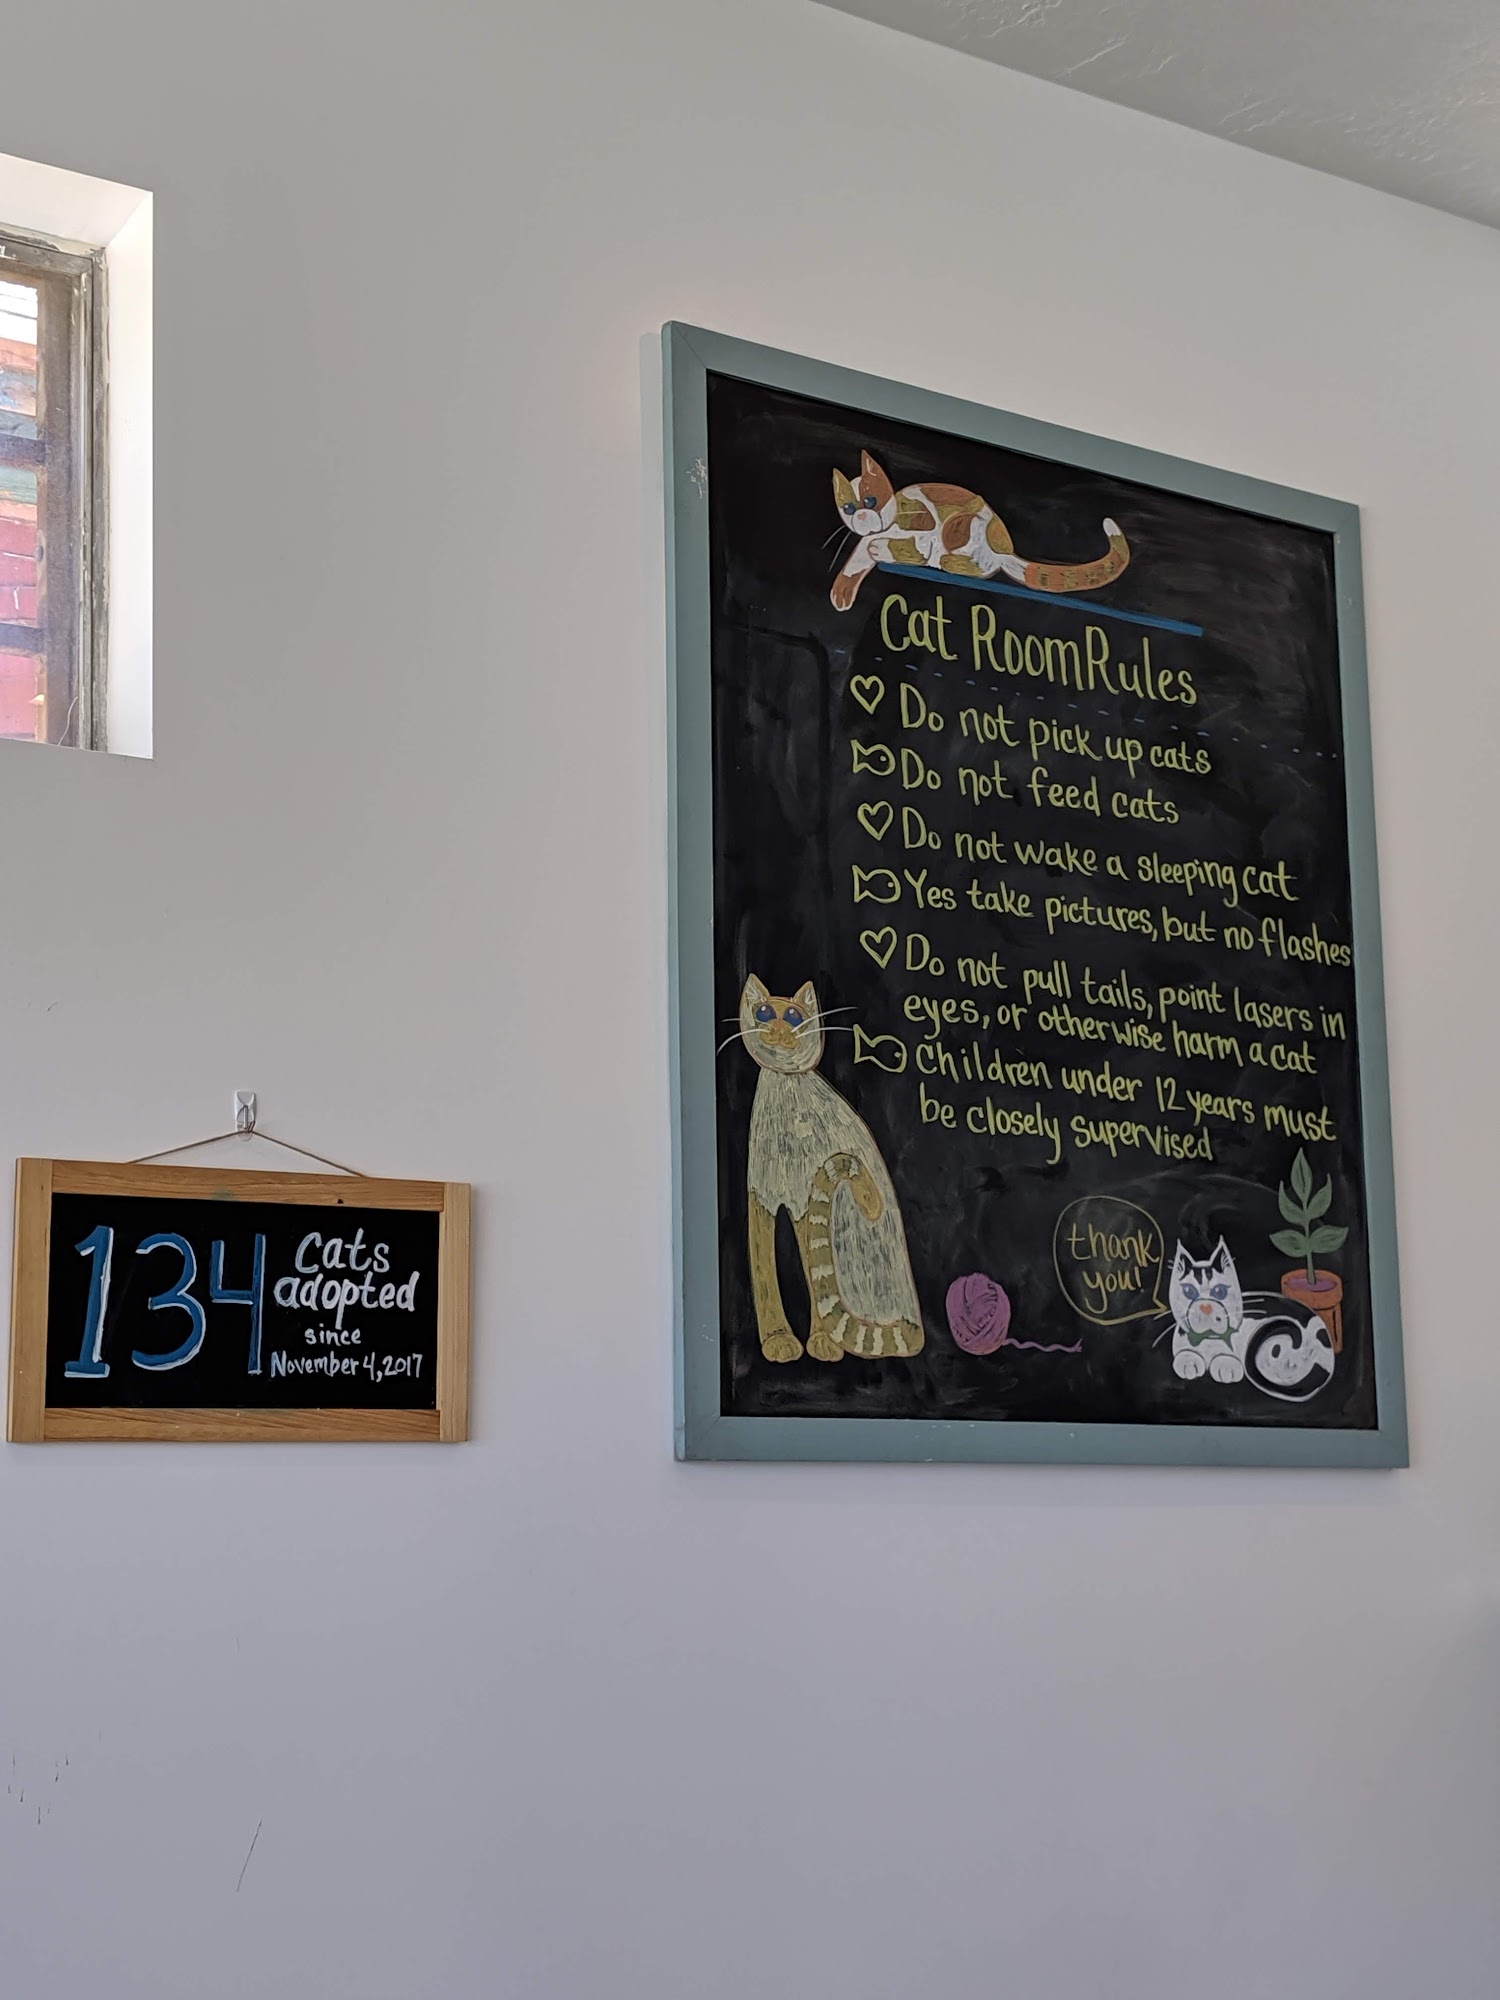 Cat Room Rules
Do not pick up cats
Do not feed cats
Do not wake a sleeping cat
Yes take pictures, but no flashes
Do not pull tails, point lasers in
eyes, or otherwise harm a cat
Children under 12 years must
be closely supervised
thank
you!
134
Cats
adopted
since
November 4, 2017